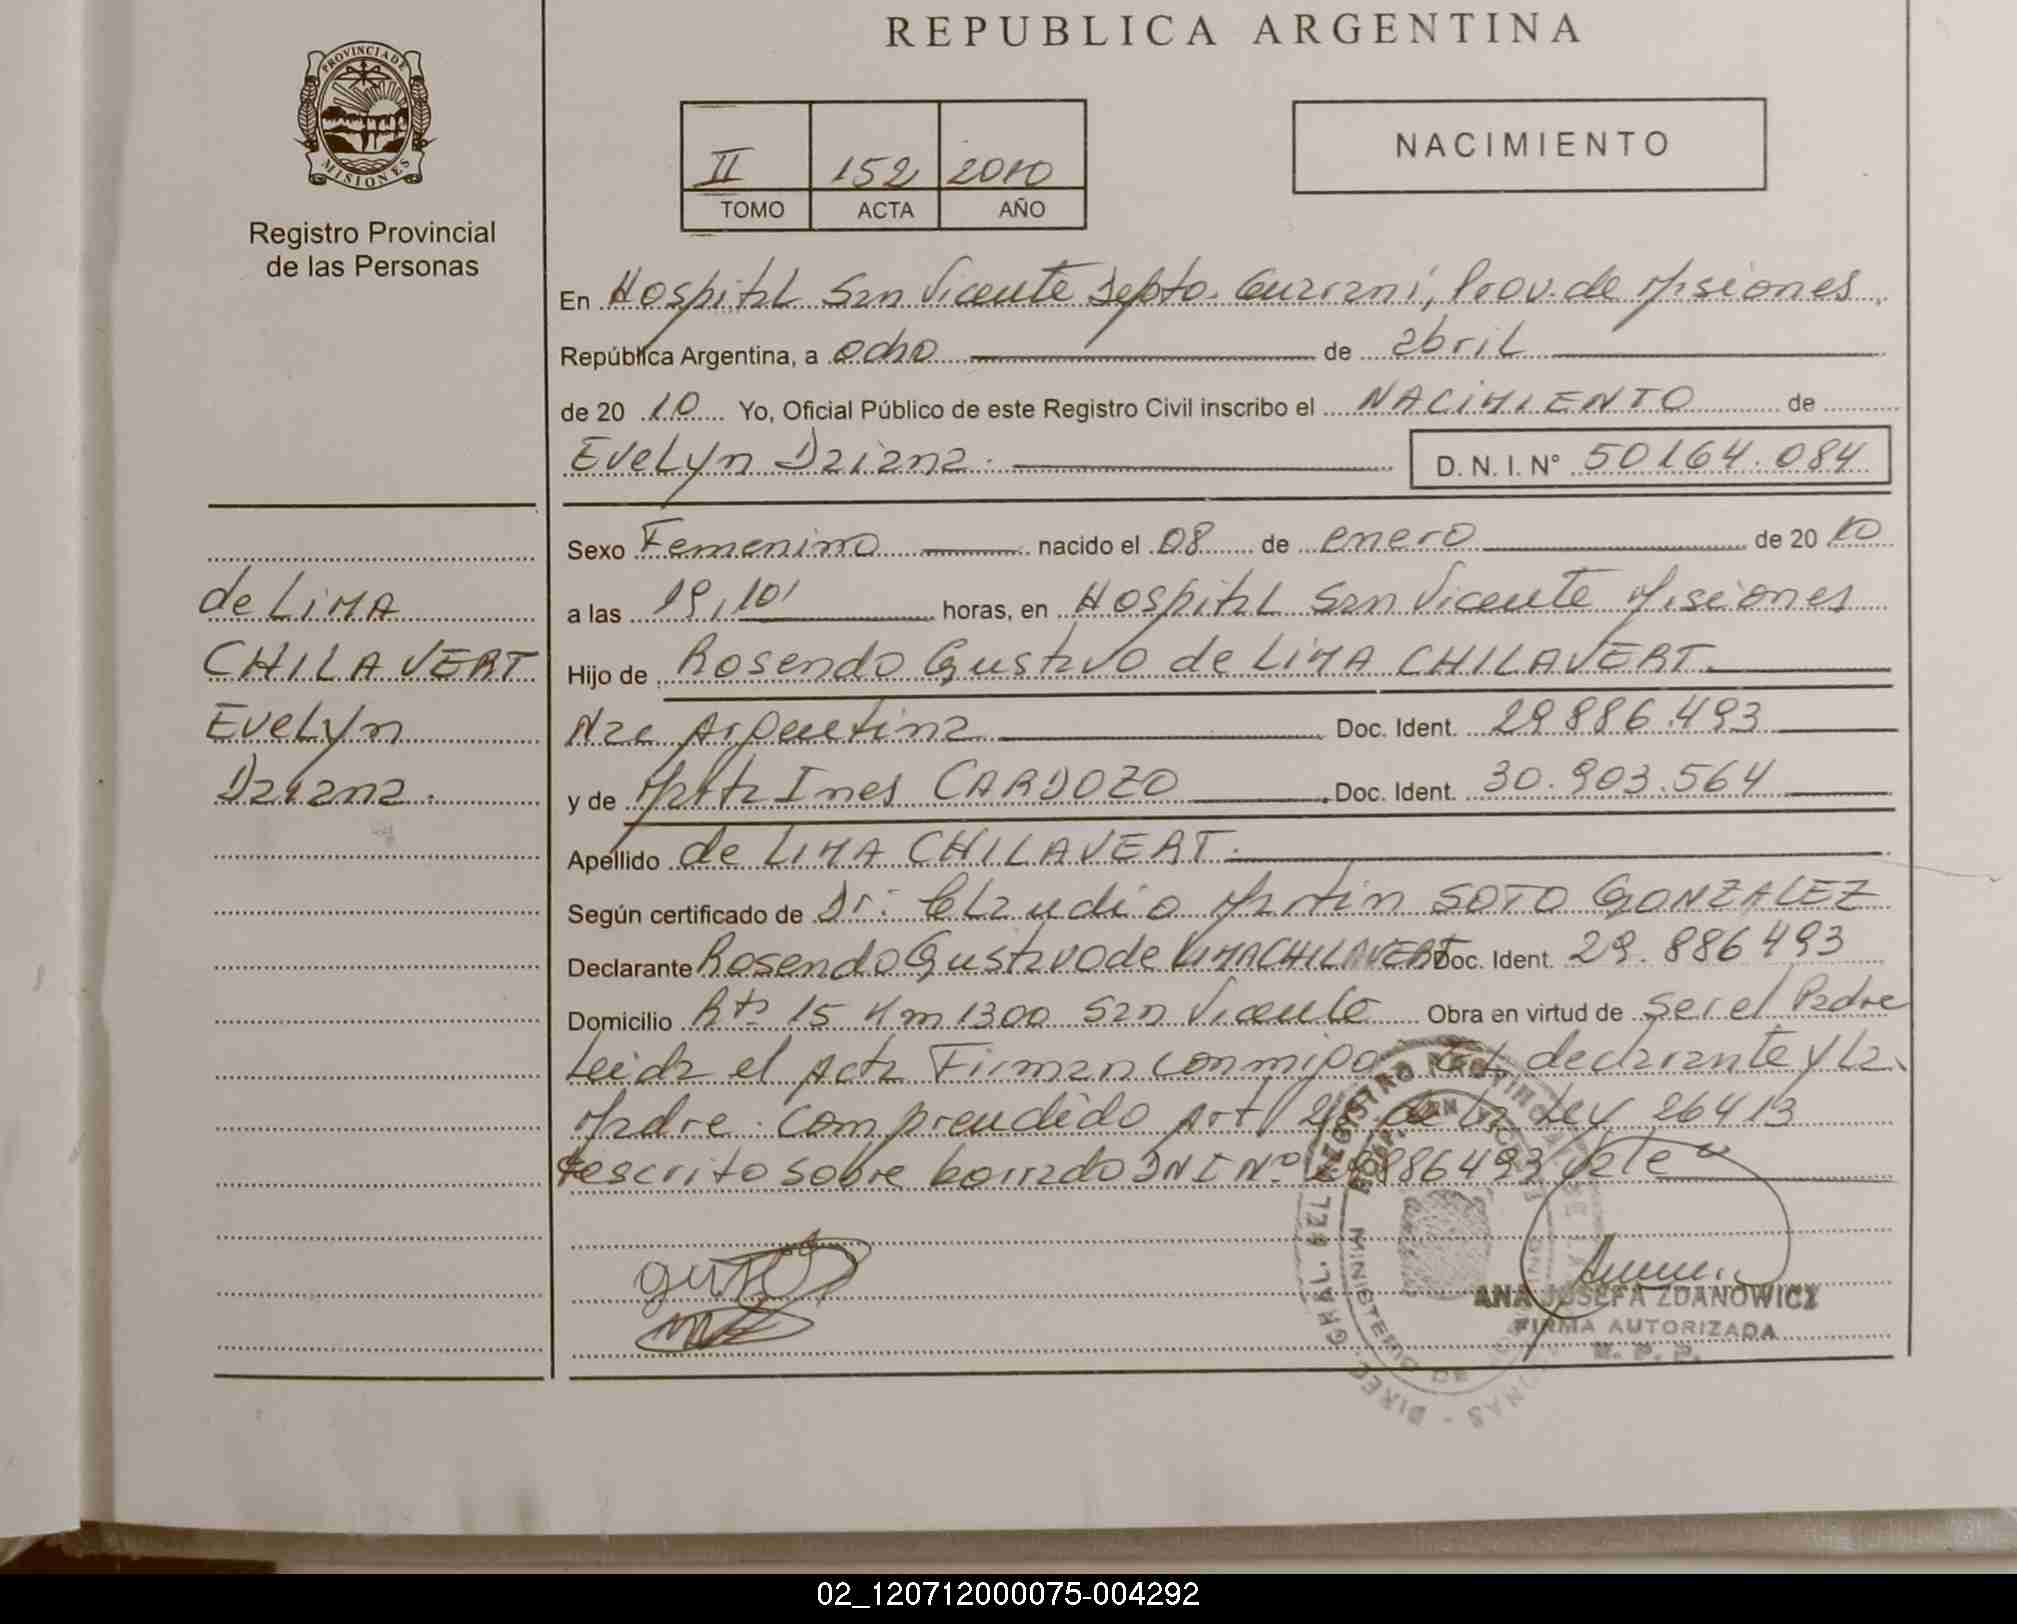 REPUBLICA ARGENTINA
PROVINCIA DE
MISIONES
Registro Provincial
de las Personas
II 152 2010
TOMO ACTA AÑO
NACIMIENTO
En Hospital San Vicente Depto. Guaraní, Prov. de Misiones
República Argentina, a ocho de abril
de 20 10 Yo, Oficial Público de este Registro Civil inscribo el NACIMIENTO de
Evelyn Daiana. D. N. I. N° 50164.084
Sexo Femenino nacido el 08 de enero de 20 10
a las 19,10' horas, en Hospital San Vicente Misiones
Hijo de Rosendo Gustavo de LIMA CHILAVERT.
Nac Argentina Doc. Ident. 29.886.493
y de Marta Ines CARDOZO Doc. Ident. 30.903.564
Apellido de LIMA CHILAVERT.
Según certificado de Dr: Claudio Martin SOTO GONZALEZ
Declarante Rosendo Gustavo de LIMA CHILAVERT Doc. Ident. 29.886493
Domicilio Rta 15 Km 1300 San Vicente Obra en virtud de ser el Padre
Leida el Acta Firman conmigo el declarante y la
Madre. Comprendido Art de la Ley 26413
escrito sobre borrado DNI N° 29886493 Vale
de LIMA
CHILAVERT
Evelyn
Daiana.
ANA JOSEFA ZDANOWICZ
FIRMA AUTORIZADA
R. P. P.
02_120712000075-004292